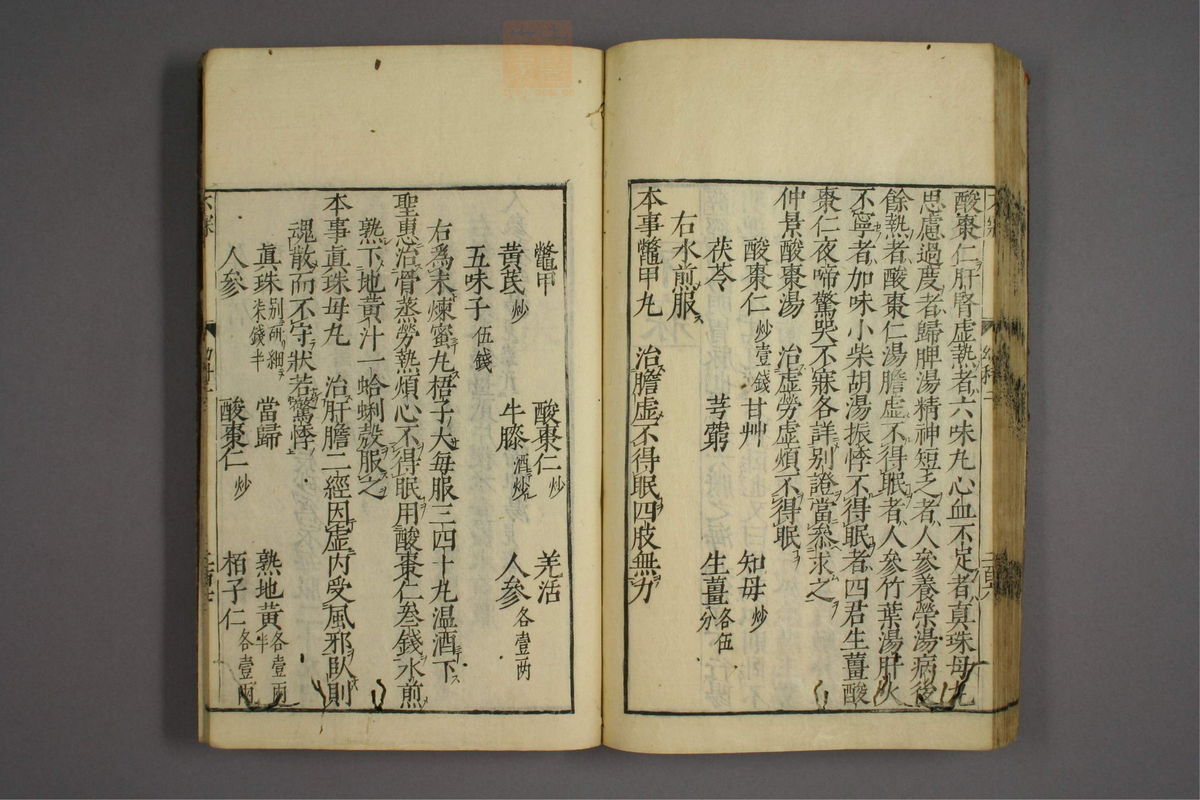 酸棗仁肝腎虚熱者六味丸心血不定者真珠母丸
思慮過度者歸脾湯精神短乏者人參養榮湯病後
餘熱者酸棗仁湯膽虚不得眠者人參竹葉湯肝火
不寧者加味小柴胡湯振悸不得眠者四君生薑酸
棗仁夜啼驚哭不寐各詳别證當叅求之
仲景酸棗湯　治虚勞虚煩不得眠
酸棗仁炒壹錢　甘艸　知母炒
茯苓　芎藭　生薑各伍分
右水煎服
本事鼈甲丸　治膽虚不得眠四肢無力
鼈甲　酸棗仁炒　羌活
黄茋炒　牛膝酒炒　人參各壹两
五味子伍錢
右爲末煉蜜丸梧子大每服三四十丸温酒下
聖惠治骨蒸勞熱煩心不得眠用酸棗仁叁錢水煎
熟下地黄汁一蛤蜊殻服之
本事眞珠母丸　治肝膽二經因虚内受風邪臥則
魂散而不守狀若驚悸
眞珠别研細柒錢半　當歸　熟地黄各壹两半
人參　酸棗仁炒　栢子仁各壹两